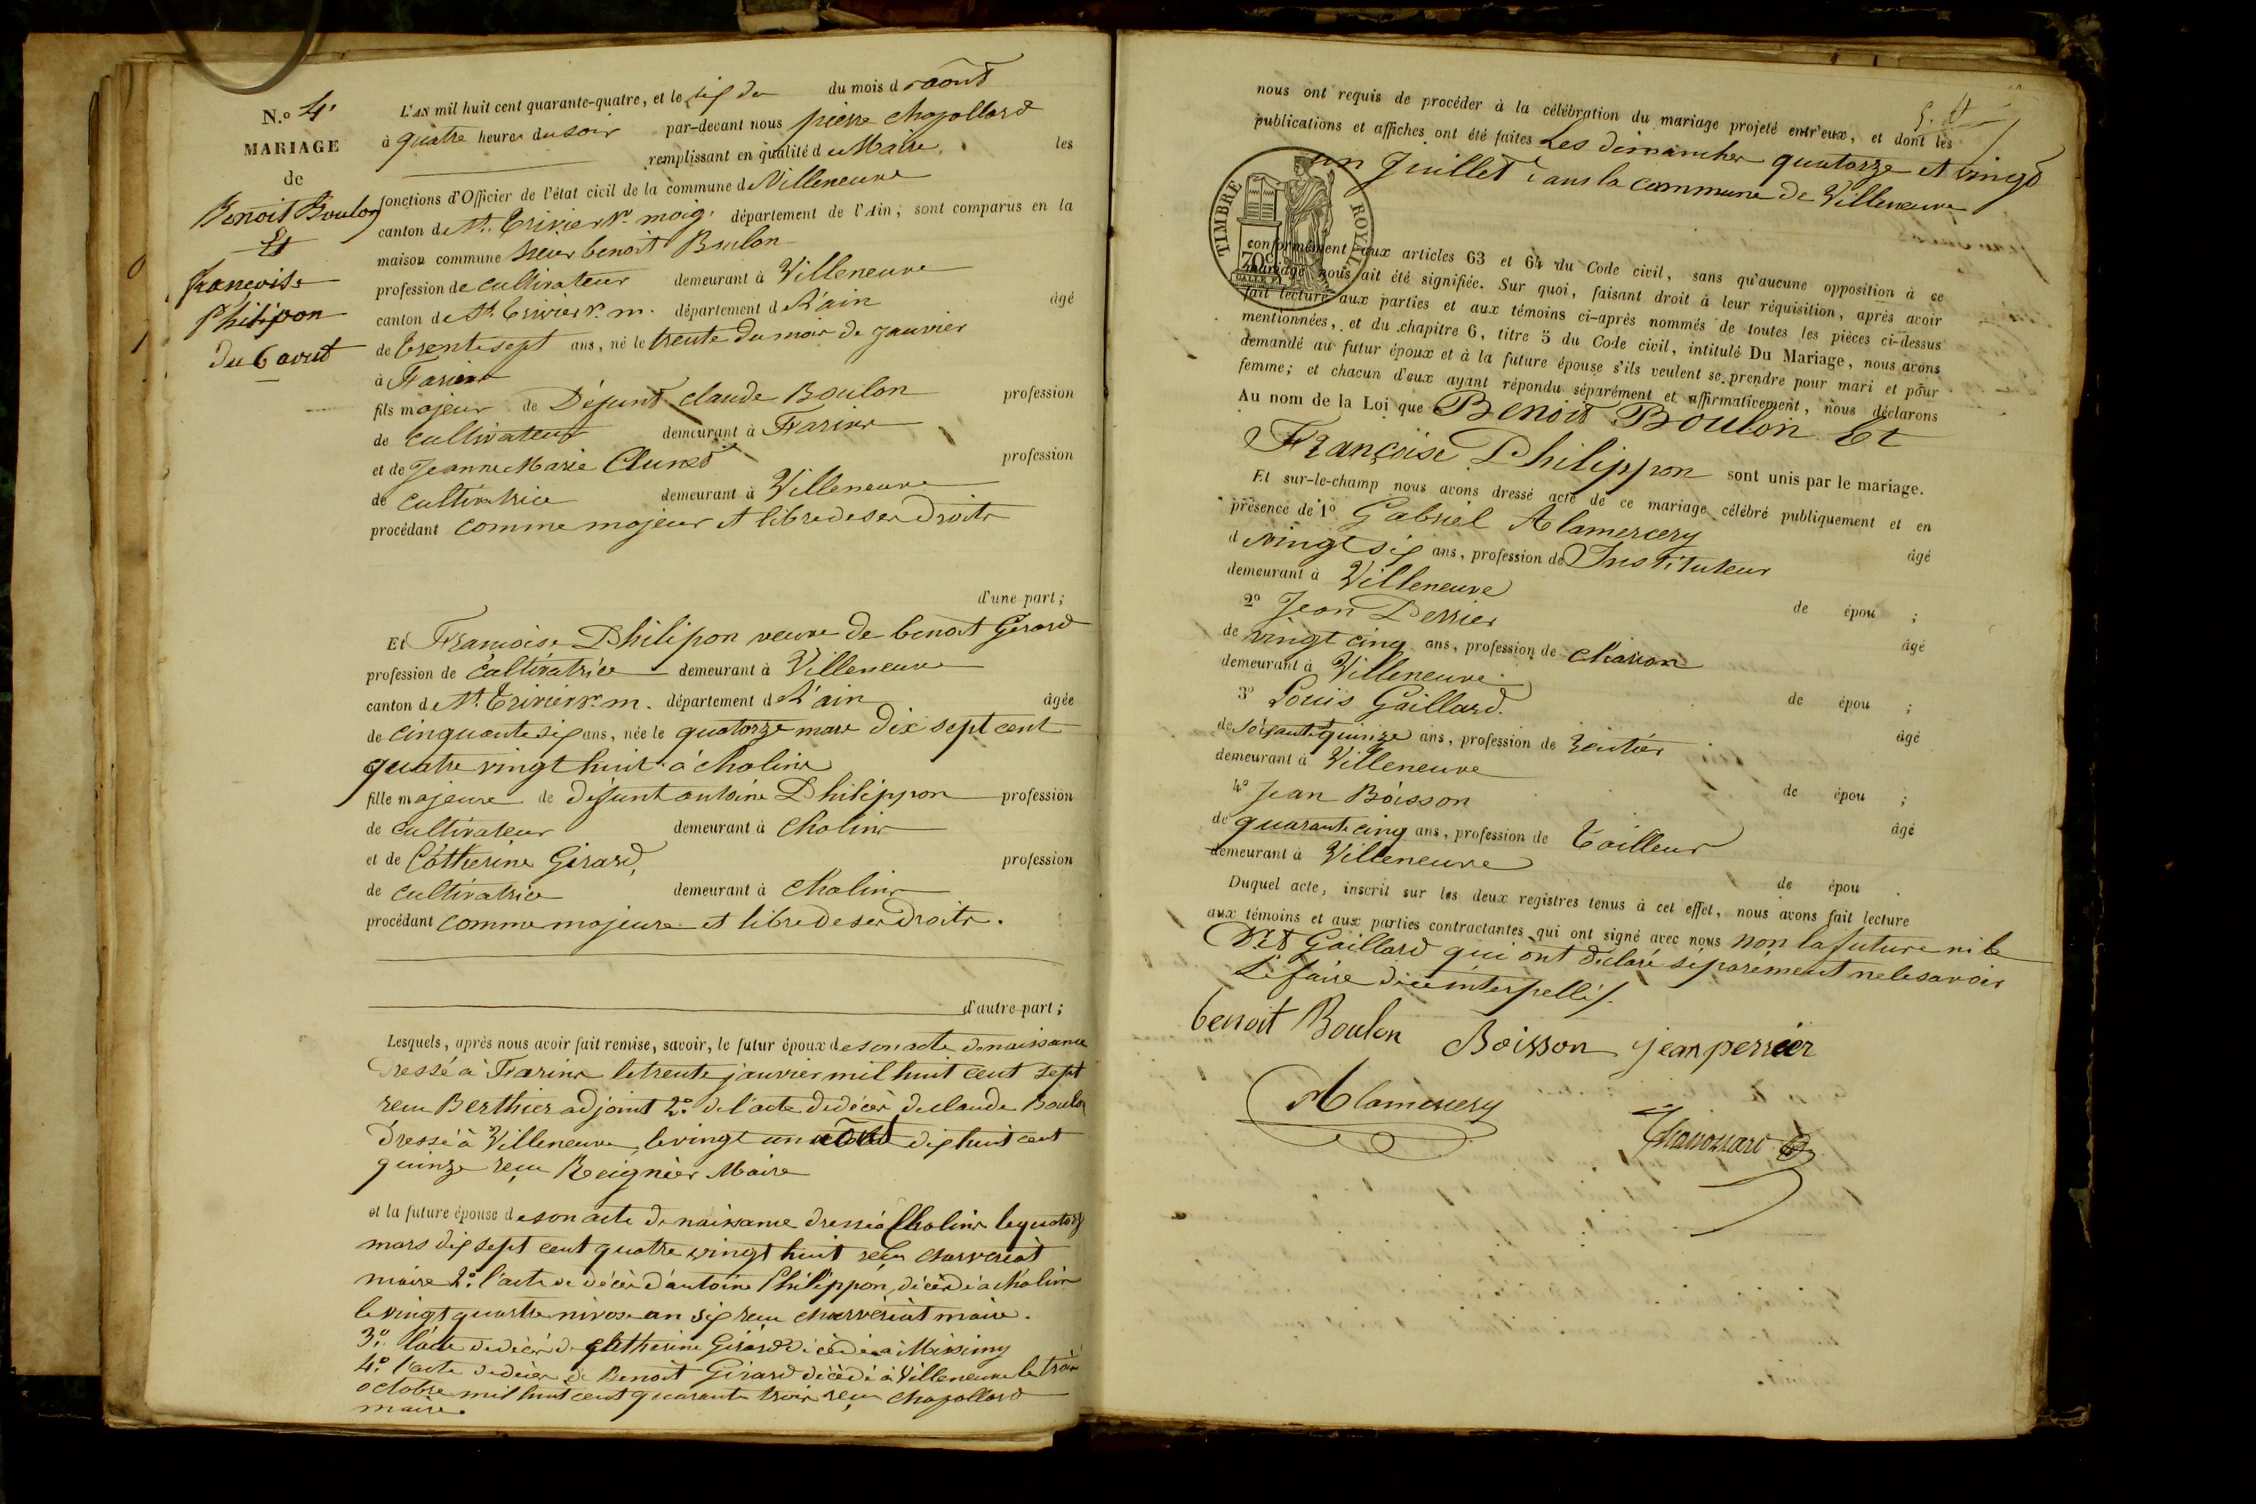 N.o 4.
MARIAGE
de
Benoit Boulon
Et
françoise
Philipon
du 6 aout
L'AN mil huit cent quarante-quatre, et le six du du mois d'aoút
à quatre heures du soir par-devant nous pierre chapollard
remplissant en qualité de Maire les
fonctions d'Officier de l'état civil de la commune de Villeneuve
canton de St. Trivier sr. moig. département de l'Ain; sont comparus en la
maison commune sieur benoit Boulon
profession de cultivateur demeurant à Villeneuve
canton de St. Trivier sr. m. département de L'ain âgé
de trente sept ans, né le trente du mois de janvier
à Frans
fils majeur de Défunt claude Boulon profession
de cultivateur demeurant à
et de Jeanne Marie profession
de cultivatrice demeurant à Villeneuve
procédant comme majeur et libre de ses droits
d'une part;
Et Francoise Philipon veuve de benoit Gerard
profession de cultivatrice demeurant à Villeneuve
canton de St. Trivier sr. m. département de L'ain âgée
de cinquante six ans, née le quatorze mars dix sept cent
quatre vingt huit à chaleins
fille majeure de défunt antoine Philippon profession
de cultivateur demeurant à chaleins
et de Catherine Girard, profession
de cultivatrice demeurant à chaleins
procédant comme majeure et libre de ses droits.
d'autre part;
Lesquels, après nous avoir fait remise, savoir, le futur époux de son acte de naissance
Dressé à le trente janvier mil huit cent sept
reçu Berthier adjoint 2.o de l'acte de décès de claude Boulon
Dressé à Villeneuve, le vingt un aout dix huit cent
quinze reçu Reignier Maire
et la future épouse de son acte de naissance dressé à Chaleins le quatorze
mars dix sept cent quatre vingt huit reçu charveriat
maire 2.o l'acte de décès d'antoine Philippon, décédé à chaleins
le vingt quatre nivose an six reçu charvériat maire.
3.o l'acte de décès de catherine Girard décédée à Misérimy
4.o l'acte de décès de Benoit Girard décédé à Villeneuve le trois
octobre mil huit cent quarante trois reçu chapollard
maire.
nous ont requis de procéder à la célébration du mariage projeté entr'eux, et dont les
publications et affiches ont été faites Les dimanches quatorze et vingt
un Juillet dans la commune de Villeneuve
TIMBRE ROYAL
70c
conformément aux articles 63 et 64 du Code civil, sans qu'aucune opposition à ce
mariage nous ait été signifiée. Sur quoi, faisant droit à leur réquisition, après avoir
fait lecture aux parties et aux témoins ci-après nommés de toutes les pièces ci-dessus
mentionnées, et du chapitre 6, titre 5 du Code civil, intitulé Du Mariage, nous avons
demandé au futur époux et à la future épouse s'ils veulent se prendre pour mari et pour
femme; et chacun d'eux ayant répondu séparément et affirmativement, nous déclarons
Au nom de la Loi que Benoit Boulon Et
Françoise Philippon sont unis par le mariage.
Et sur-le-champ nous avons dressé acte de ce mariage célébré publiquement et en
présence de 1o Gabriel Alamercery
de vingt six ans, profession de Instituteur âgé
demeurant à Villeneuve
de épou ;
2o Jean Perrier
de vingt cinq ans, profession de charron âgé
demeurant à Villeneuve.
de épou ;
3o Louis Gaillard.
de soixante quinze ans, profession de rentier âgé
demeurant à Villeneuve
de épou ;
4o Jean Boisson
de quarante cinq ans, profession de tailleur âgé
demeurant à Villeneuve
de épou .
Duquel acte, inscrit sur les deux registres tenus à cet effet, nous avons fait lecture
aux témoins et aux parties contractantes qui ont signé avec nous non la future ni le
Gaillard qui ont déclaré séparément ne le savoir
faire de ce interpellés.
benoit Boulon Boisson jean perrier
Alamercery